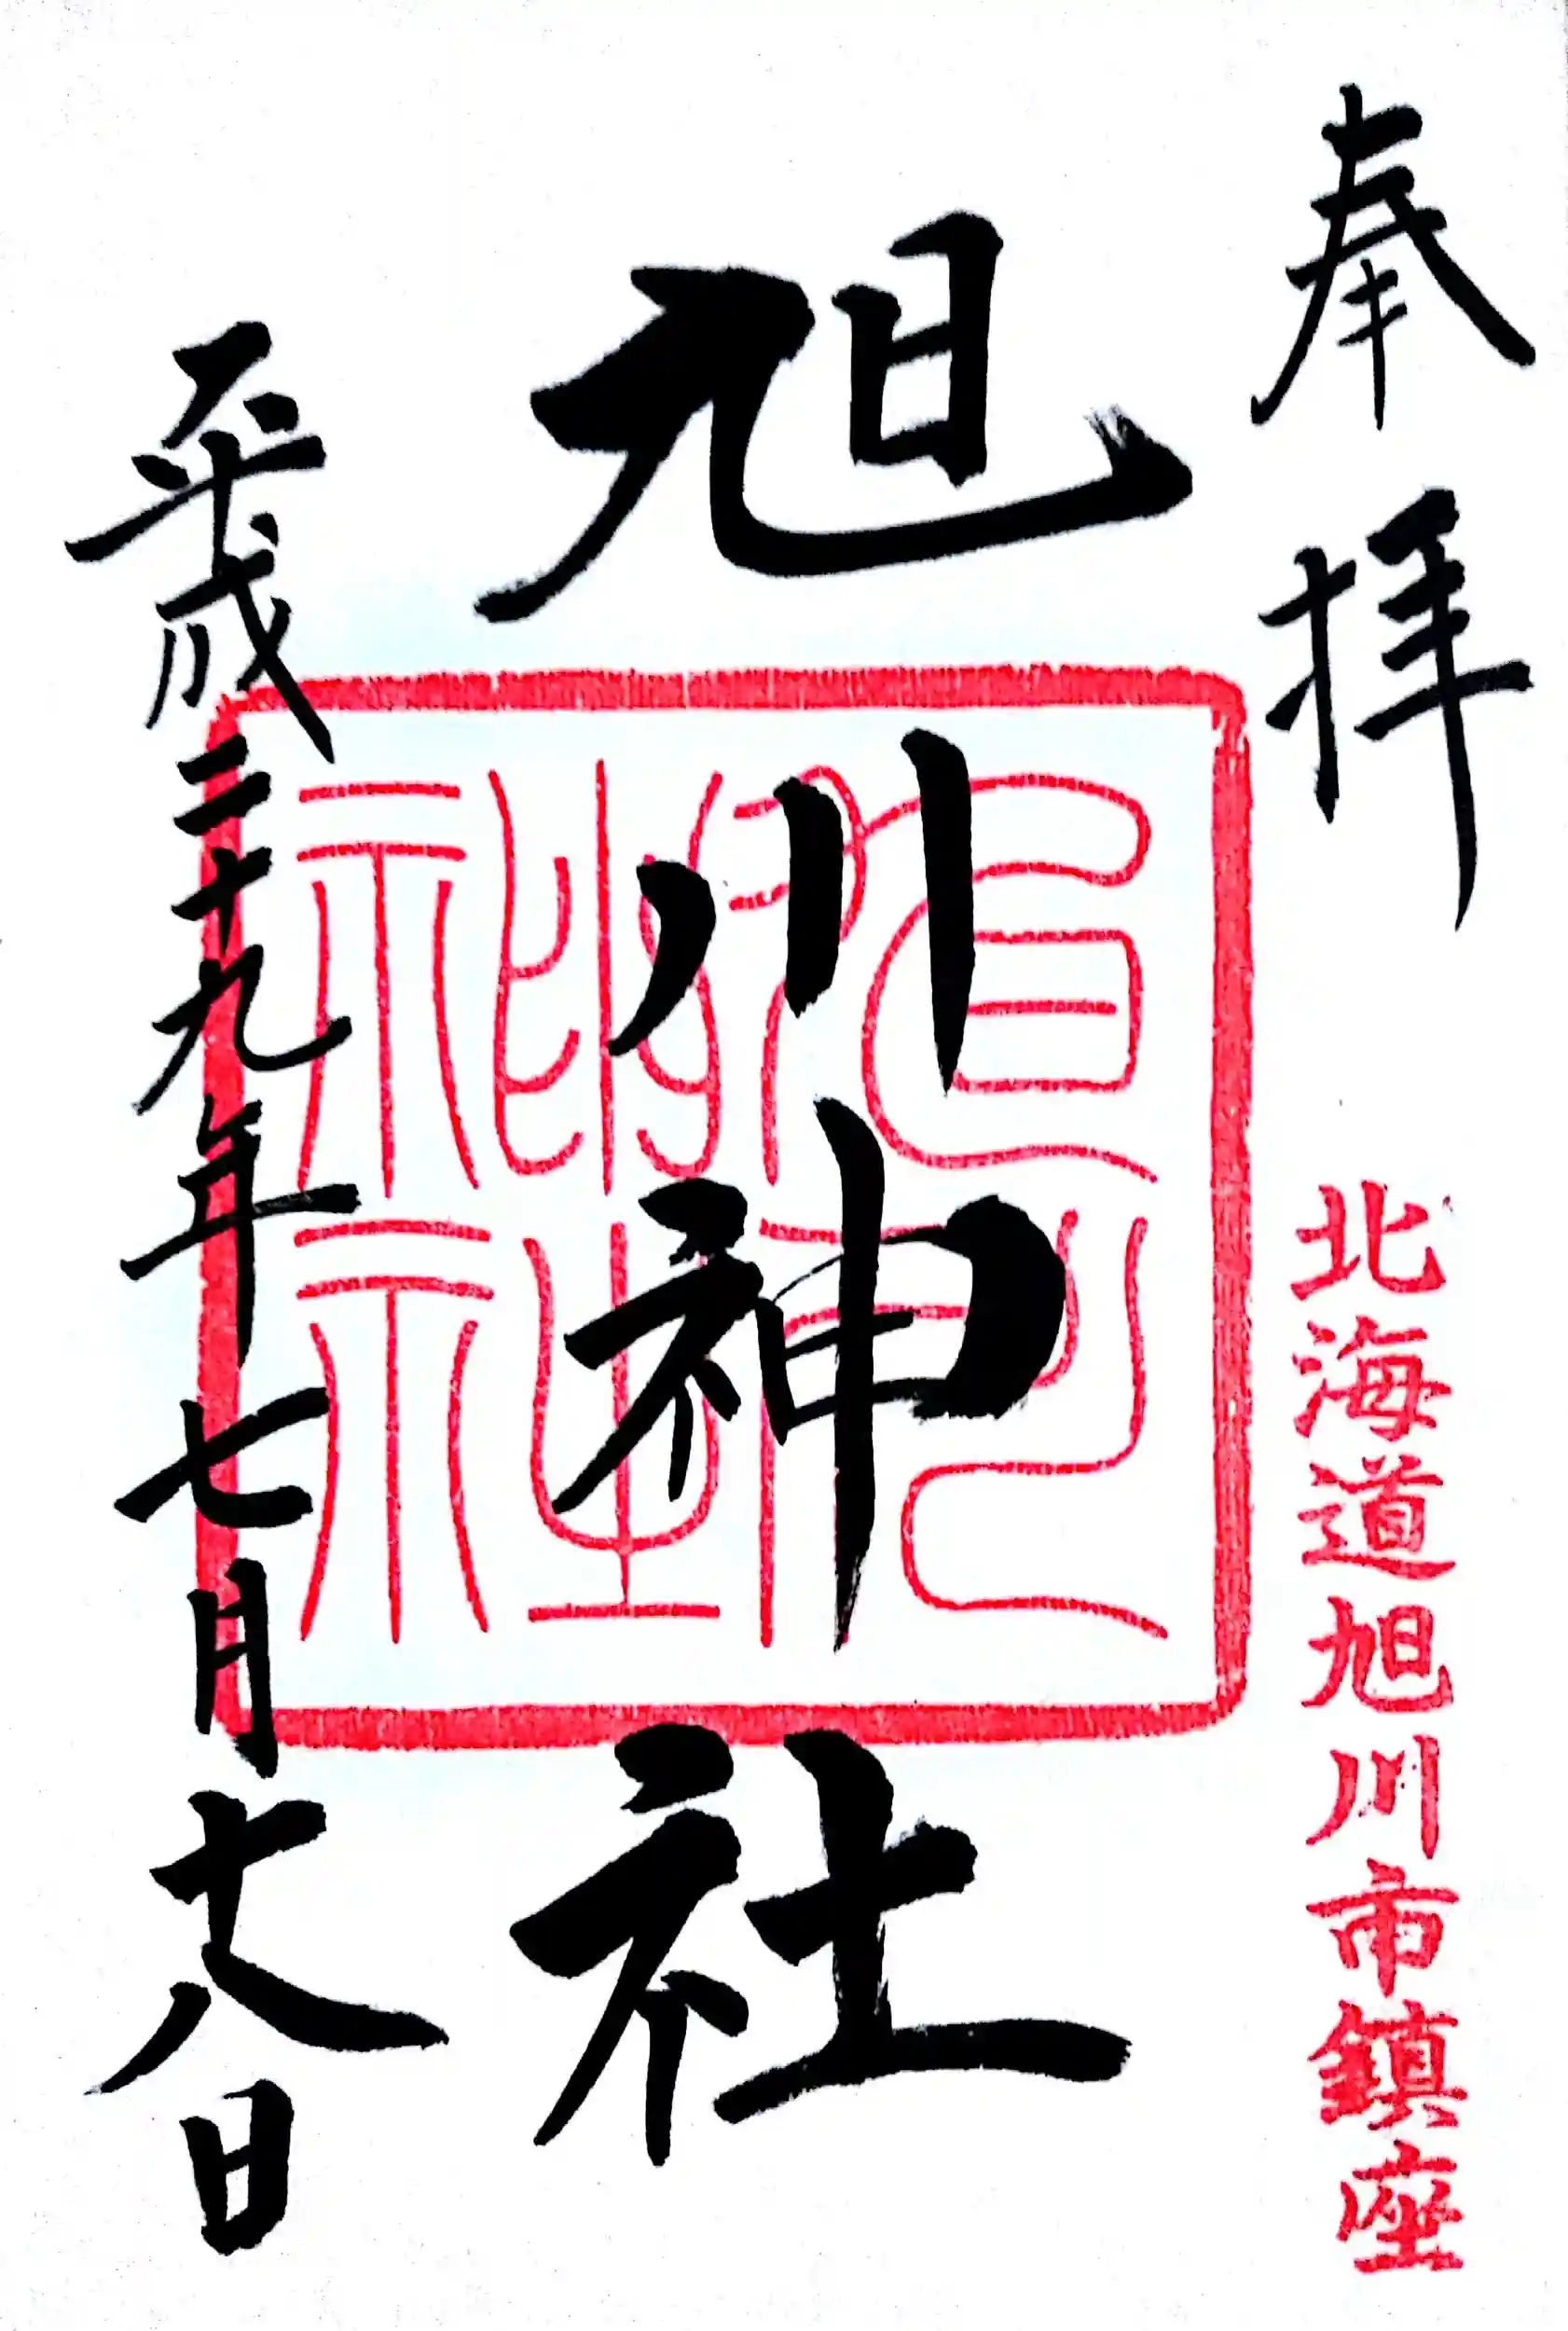 奉拝
北海道旭川市鎮座
旭川神社
平成二十九年七月十八日